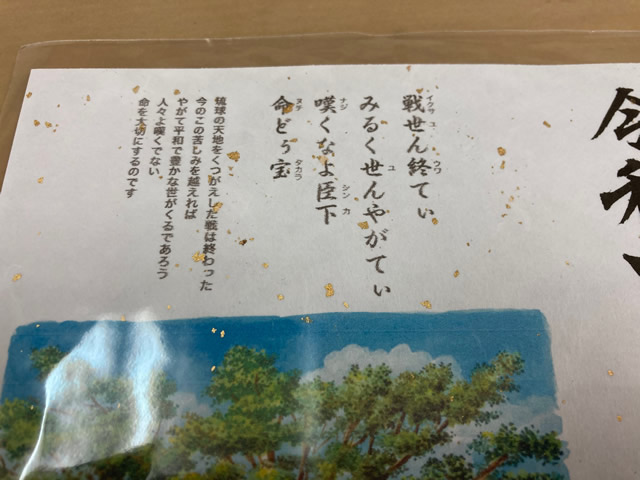 戦世ん終てぃ
イクサ ユ ウワ
みるく世んやがてぃ
ユ
嘆くなよ臣下
ナジ シンカ
命どぅ宝
ヌチ タカラ
琉球の天地をくつがえした戦は終わった
今のこの苦しみを越えれば
やがて平和で豊かな世がくるであろう
人々よ嘆くでない
命を大切にするのです